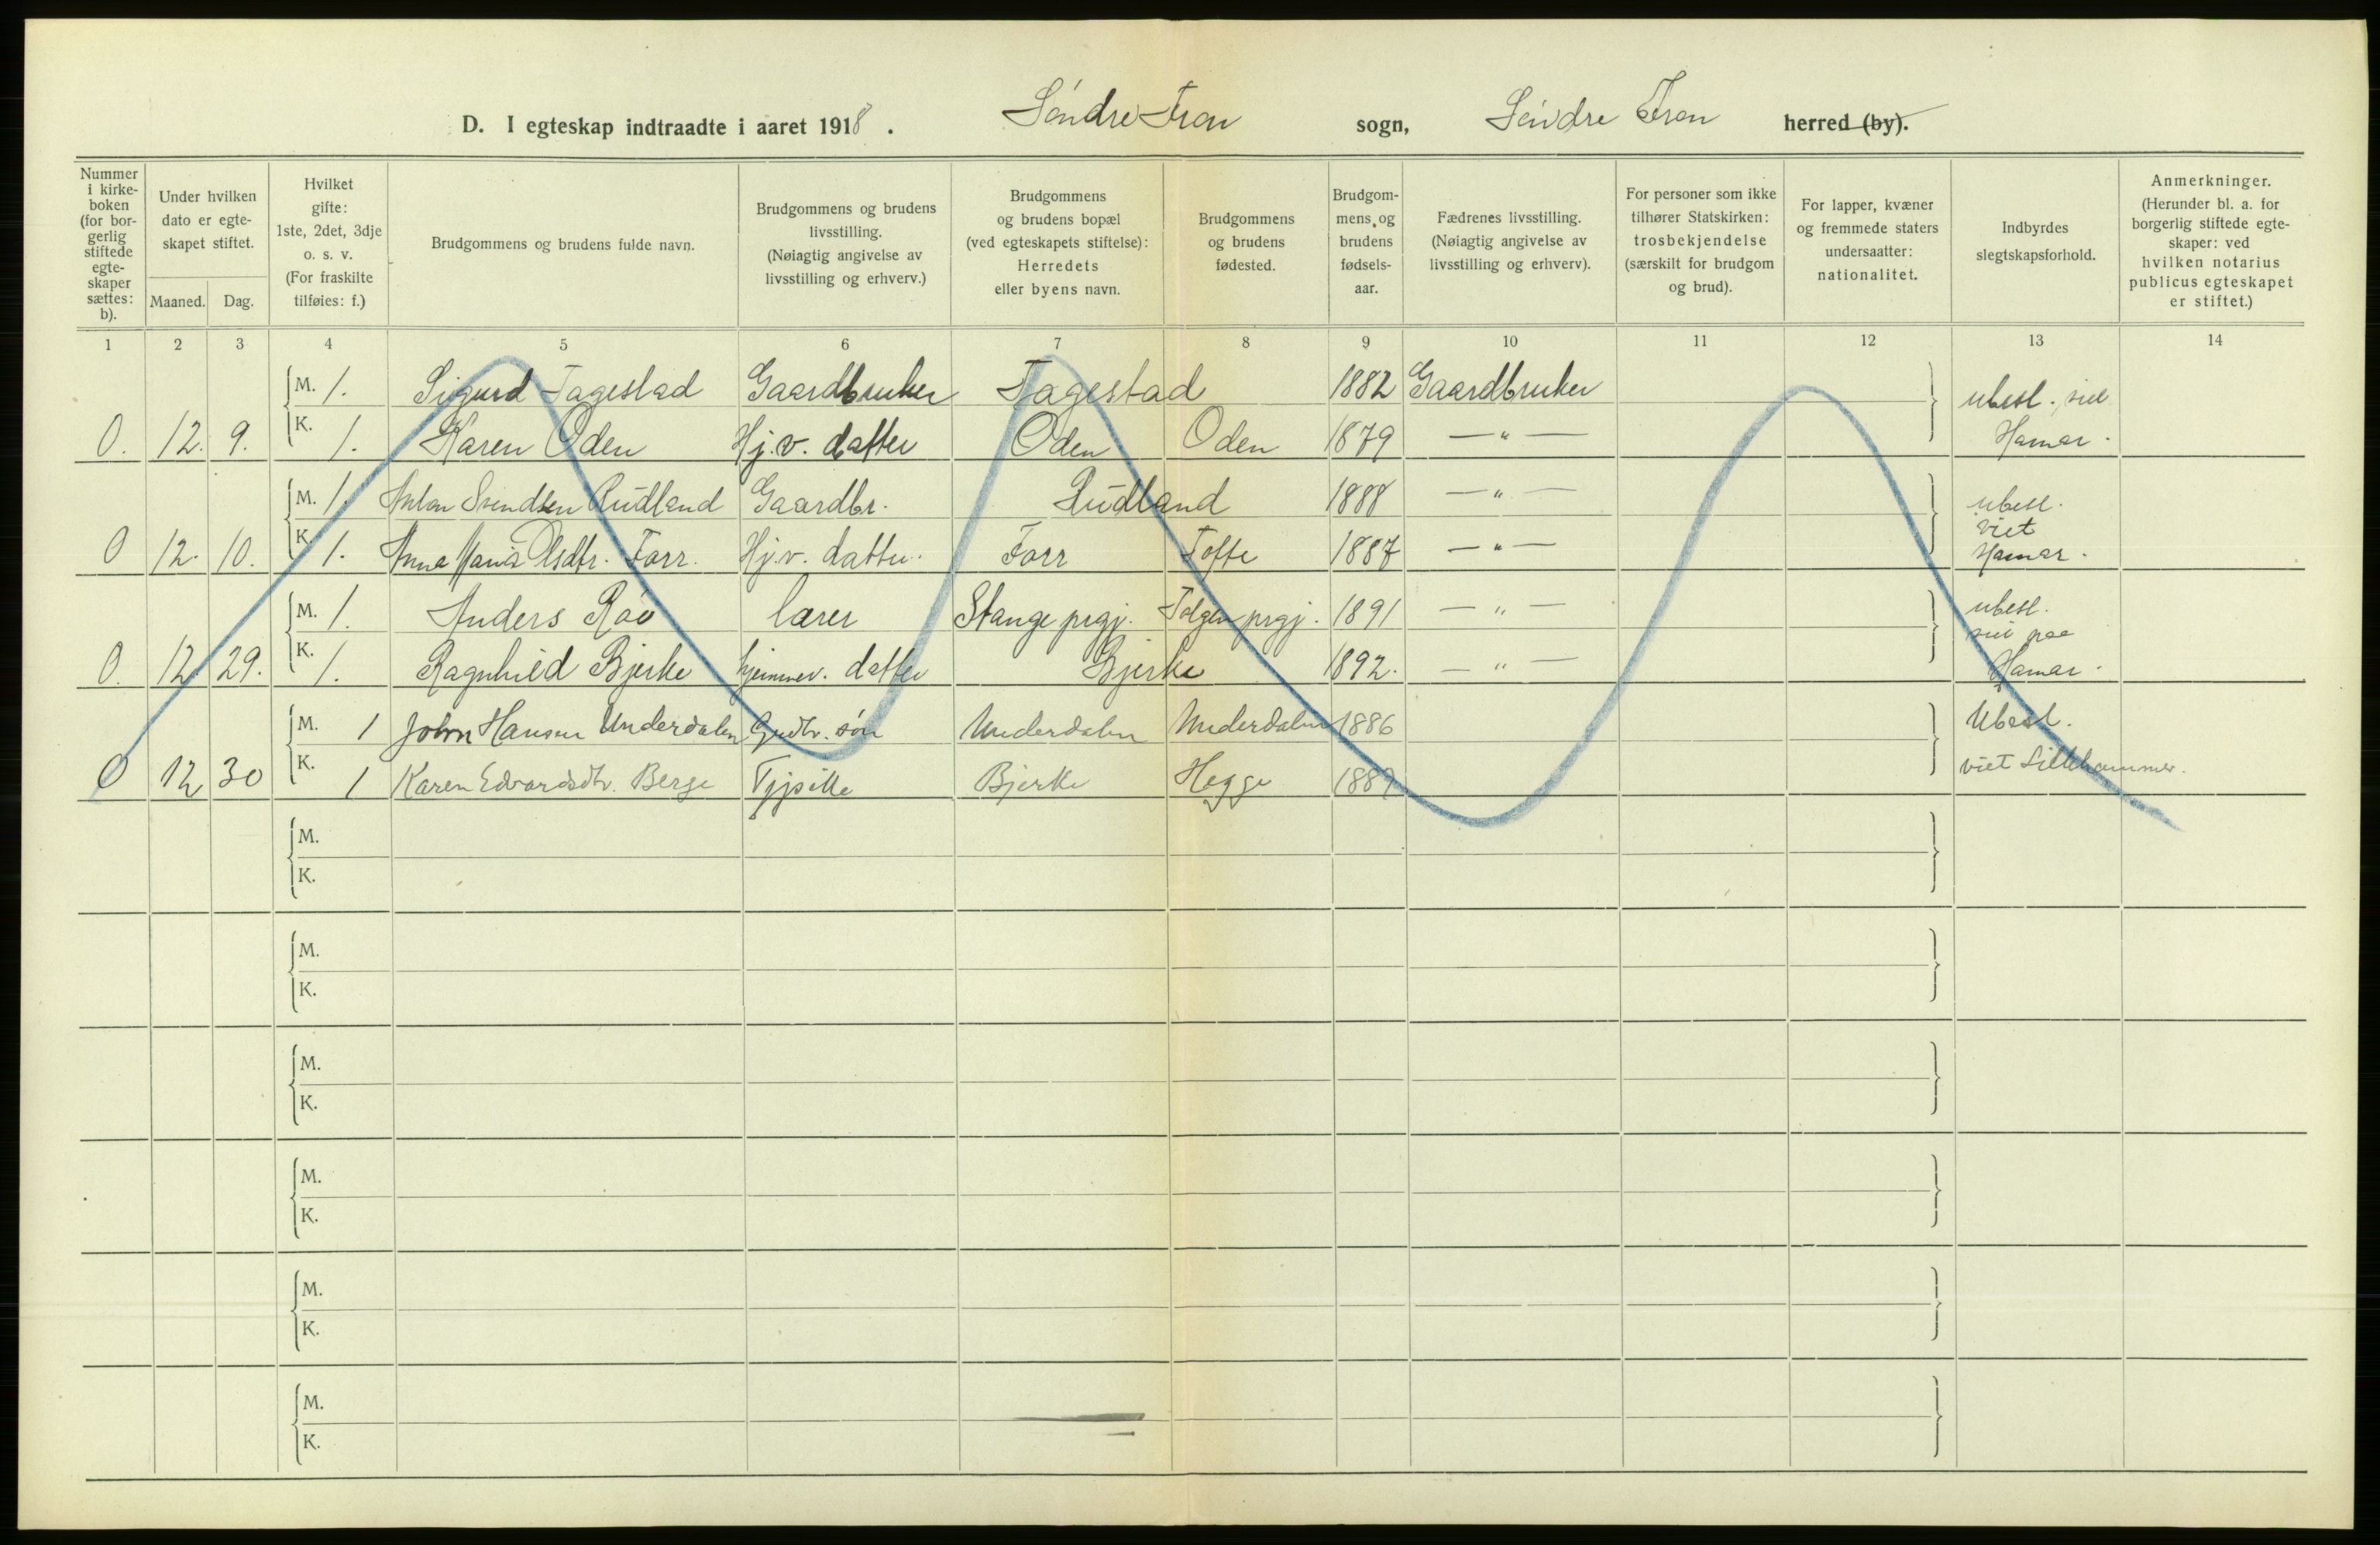 D. I egteskap indtraadte i aaret 1918. Søndre Fron sogn, Søndre Fron herred (by).
Nummer i kirke-boken (for bor-gerlig stiftede egte-skaper sættes: b).
Under hvilken dato er egte-skapet stiftet.
Maaned. Dag.
Hvilket gifte: 1ste, 2det, 3dje o. s. v. (For fraskilte tilføies: f.)
Brudgommens og brudens fulde navn.
Brudgommens og brudens livsstilling. (Nøiagtig angivelse av livsstilling og erhverv.)
Brudgommens og brudens bopæl (ved egteskapets stiftelse): Herredets eller byens navn.
Brudgommens og brudens fødested.
Brudgom-mens og brudens fødsels-aar.
Fædrenes livsstilling. (Nøiagtig angivelse av livsstilling og erhverv).
For personer som ikke tilhører Statskirken: trosbekjendelse (særskilt for brudgom og brud).
For lapper, kvæner og fremmede staters undersaatter: nationalitet.
Indbyrdes slegtskapsforhold.
Anmerkninger. (Herunder bl. a. for borgerlig stiftede egte-skaper: ved hvilken notarius publicus egteskapet er stiftet.)
1 2 3 4 5 6 7 8 9 10 11 12 13 14
M. 1. Sigurd Fagestad Gaardbruker Fagestad 1882 Gaardbruker ubesl.
0. 12. 9. K. 1. Karen Oden Hj. v. datter Oden Oden 1879 — " — Hamar.
M. 1. Anton Svendsen Rudland Gaardbr. Rudland 1888 — " — ubesl.
viet
0 12. 10. K. 1. Anna Maria Olsdtr. Forr. Hj. v. datter. Forr Tofte 1887 — " — Hamar.
M. 1. Anders Røe lærer Stange prgj. Tolgen prgj. 1891 — " — ubesl.
0. 12 29. K. 1. Ragnhild Bjerke hjemmev. datter Bjerke 1892. — " — Hamar.
M. 1 John Hansen Underdalen Grdbr. søn Underdalen Underdalen 1886 Ubesl.
0 12 30 K. 1 Karen Edvardsdtr. Berge Bjerke Hegge 188 viet Lillehammer.
M.
K.
M.
K.
M.
K.
M.
K.
M.
K.
M.
K.